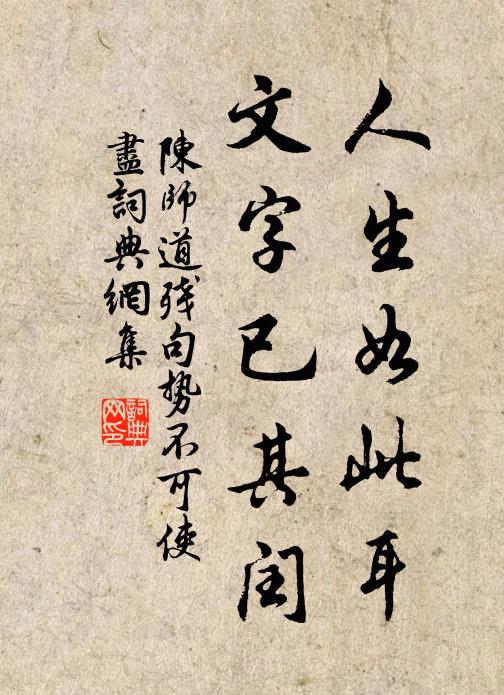 人生如此耳
文字已其闰
陳師道残句势不可使
盡詞典網集
詞典
网印